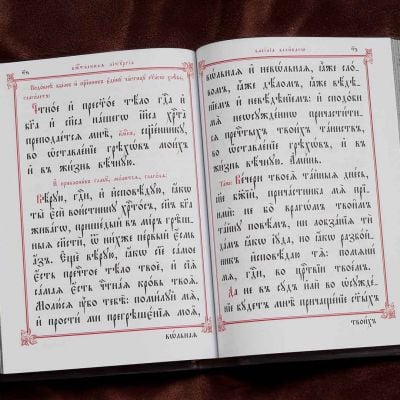 Чⷭ҇тно́е и҆ прест҃о́е тѣ́ло гдⷭ҇а и҆
бг҃а и҆ сп҃са на́шегѡ і҆и҃са хрⷭ҇та̀
преподае́тсѧ мнѣ̀, свѧще́ннику,
во ѡ҆ставле́ніе грѣхѡ́въ мои́хъ
и҆ въ жи́знь вѣ́чную.
Вѣ́рую, гдⷭ҇и, и҆ и҆сповѣ́дую, ꙗ҆́кѡ
ты̀ є҆сѝ вои́стинну хрⷭ҇то́съ, сн҃ъ бг҃а
жива́гѡ, прише́дый въ мі́ръ грѣ́ш-
ныѧ сп҃стѝ, ѿ ни́хже пе́рвый є҆́смь
а҆́зъ. Є҆щѐ вѣ́рую, ꙗ҆́кѡ сїѐ са́мое
є҆́сть пречⷭ҇тое тѣ́ло твоѐ, и҆ сїѧ̀
са́маѧ є҆́сть чⷭ҇тна́ѧ кро́вь твоѧ̀.
Молю́сѧ ᲂу҆̀бо тебѣ̀: поми́лꙋй мѧ̀,
и҆ простѝ ми прегрѣшє́нїѧ моѧ̑,
вѡ́льнаѧ
вѡ́льнаѧ и҆ невѡ́льнаѧ, ꙗ҆̀же сло́-
вомъ, ꙗ҆̀же дѣ́ломъ, ꙗ҆̀же вѣ́дѣ-
нїемъ и҆ невѣ́дѣнїемъ: и҆ сподо́би
мѧ̀ неѡсꙋжде́ннѡ причасти́ти-
сѧ пречⷭ҇тыхъ твои́хъ та́инствъ,
во ѡ҆ставле́нїе грѣхѡ́въ, и҆ въ
жи́знь вѣ́чнꙋю. А҆ми́нь.
Та́же: Ве́чери твоеѧ̀ та́йныѧ дне́сь,
сн҃е бж҃їй, прича́стника мѧ̀ прі-
имѝ: не бо̀ врагѡ́мъ твои̑мъ
та́йнꙋ повѣ́мъ, ни лобза́нїѧ тѝ
да́мъ ꙗ҆́кѡ і҆ꙋ́да, но ꙗ҆́кѡ разбо́й-
никъ и҆сповѣ́даю тѧ̀: помѧнѝ
мѧ̀, гдⷭ҇и, во црⷭ҇твїи твое́мъ.
Да не въ сꙋ́дъ и҆лѝ во ѡ҆сꙋжде́-
нїе бꙋ́детъ мнѣ̀ причаще́нїе ст҃ы́хъ
твои́хъ